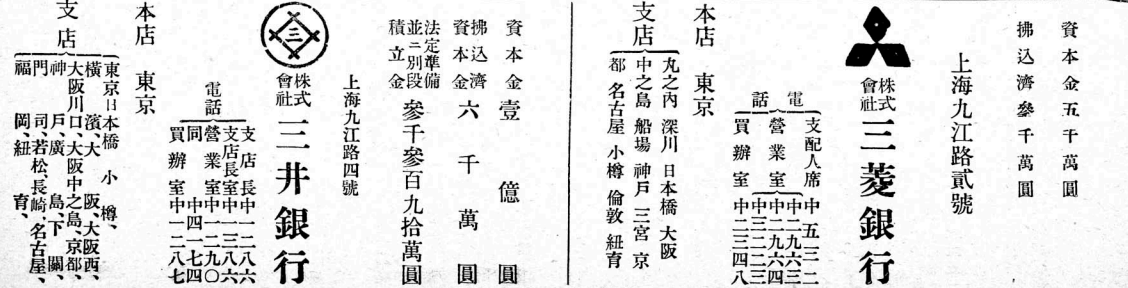 資本金五千萬圓
拂込濟參千萬圓
上海九江路貳號
株式會社三菱銀行
電話
支配人席中一五三二
營業室中一二九六三
中一二九六四
中三三三三
買辦室中二三四八
本店 東京
支店
丸之内 深川 日本橋 大阪
中之島 船場 神戸 三宮 京
都 名古屋 小樽 倫敦 紐育
資本金壹億圓
拂込濟資本金六千萬圓
法定準備並ニ別段積立金參千參百九拾萬圓
上海九江路四號
三
株式會社三井銀行
電話
支店長中一二八六
支店長室中一三八六
營業室中一二九〇
同中四一七四
買辦室中一二八七
本店 東京
支店
東京日本橋 小樽、
横濱、大阪、大阪西、
大阪川口、大阪中之島、京都、
神戸、廣島、下關、
門司、若松、長崎、名古屋、
福岡、紐育、